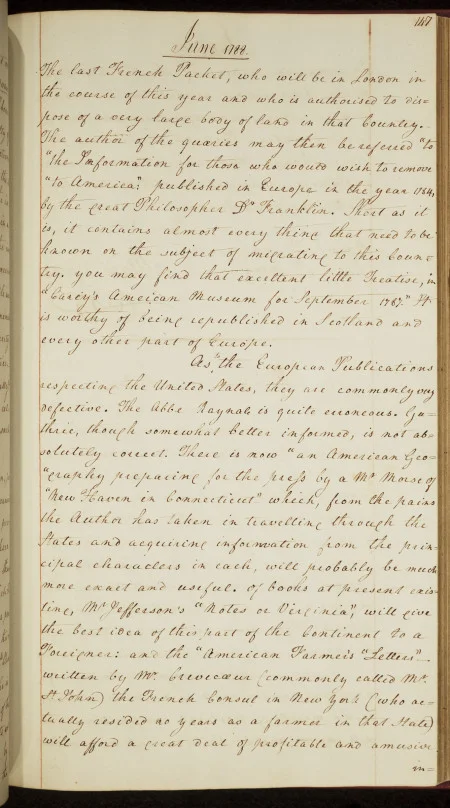 117
June 1788.
The last French Packet, who will be in London in
the course of this year and who is authorised to dis=
pose of a very large body of land in that Country.
The author of the quæries may then be referred "to
"the Information for those who would wish to remove
"to America": published in Europe in the year 1784,
by the great Philosopher Dr Franklin. Short as it
is, it contains almost every thing that need to be
known on the subject of migrating to this Coun=
try. you may find that excellent little Treatise, in
"Carey's Ameican Museum for September 1787." It
is worthy of being republished in Scotland and
every other part of Europe.
As to the European Publications
respecting the United States, they are commonly very
defective. The Abbe Raynals is quite erroneous. Gu=
thrie, though somewhat better informed, is not ab=
solutely correct. There is now "an American Geo=
"graphy preparing for the press by a Mr Morse of
"New Haven in Connecticut" which, from the pains
the Author has taken in travelling through the
States and acquiring information from the prin=
cipal characters in each, will probably be much
more exact and useful. of books at present exis=
ting, Mr Jefferson's "Notes on Virginia", will give
the best idea of this part of the Continent to a
Foreigner: and the "American Farmer's "Letters"
written by Mr. Crevecœur (commonly called Mr.
St John) the French Consul in New York (who ac=
tually resided 20 years as a farmer in that State)
will afford a great deal of profitable and amusive
in=